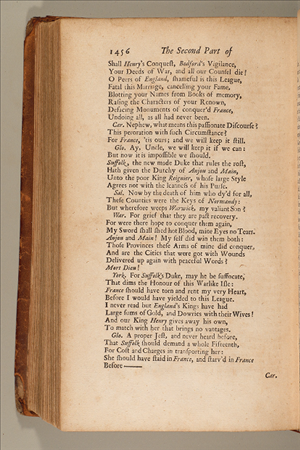 1456 The Second Part of
Shall Henry's Conquest, Bedford's Vigilance,
Your Deeds of War, and all our Counsel die?
O Peers of England, shameful is this League,
Fatal this Marriage, cancelling your Fame,
Blotting your Names from Books of memory,
Rasing the Characters of your Renown,
Defacing Monuments of conquer'd France,
Undoing all, as all had never been.
Car. Nephew, what means this passionate Discourse?
This peroration with such Circumstance?
For France, 'tis ours; and we will keep it still.
Glo. Ay, Uncle, we will keep it if we can:
But now it is impossible we should.
Suffolk, the new made Duke that rules the rost,
Hath given the Dutchy of Anjou and Main,
Unto the poor King Reignier, whose large Style
Agrees not with the leanness of his Purse.
Sal. Now by the death of him who dy'd for all,
These Counties were the Keys of Normandy:
But wherefore weeps Warwick, my valiant Son?
War. For grief that they are past recovery.
For were there hope to conquer them again,
My Sword shall shed hot Blood, mine Eyes no Tears.
Anjou and Main! My self did win them both:
Those Provinces these Arms of mine did conquer,
And are the Cities that I got with Wounds
Delivered up again with peaceful Words?
Mort Dieu!
York. For Suffolk's Duke, may he be suffocate,
That dims the Honour of this Warlike Isle:
France should have torn and rent my very Heart,
Before I would have yielded to this League.
I never read but England's Kings have had
Large sums of Gold, and Dowries with their Wives:
And our King Henry gives away his own,
To match with her that brings no vantages.
Glo. A proper Jest, and never heard before,
That Suffolk should demand a whole Fifteenth,
For Cost and Charges in transporting her:
She should have staid in France, and starv'd in France
Before ——
Car.